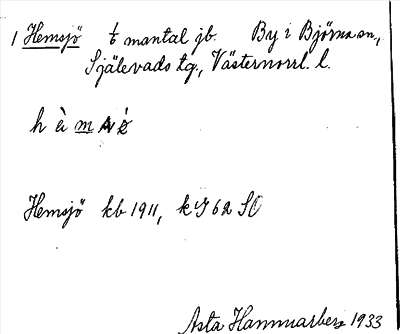 1 Hemsjö ⅙ mantal jb. By i Björna sn,
Själevads tg, Västernorrl. l.
h è m
Hemsjö kb 1911, k 62 SO
Asta Hammarberg 1933